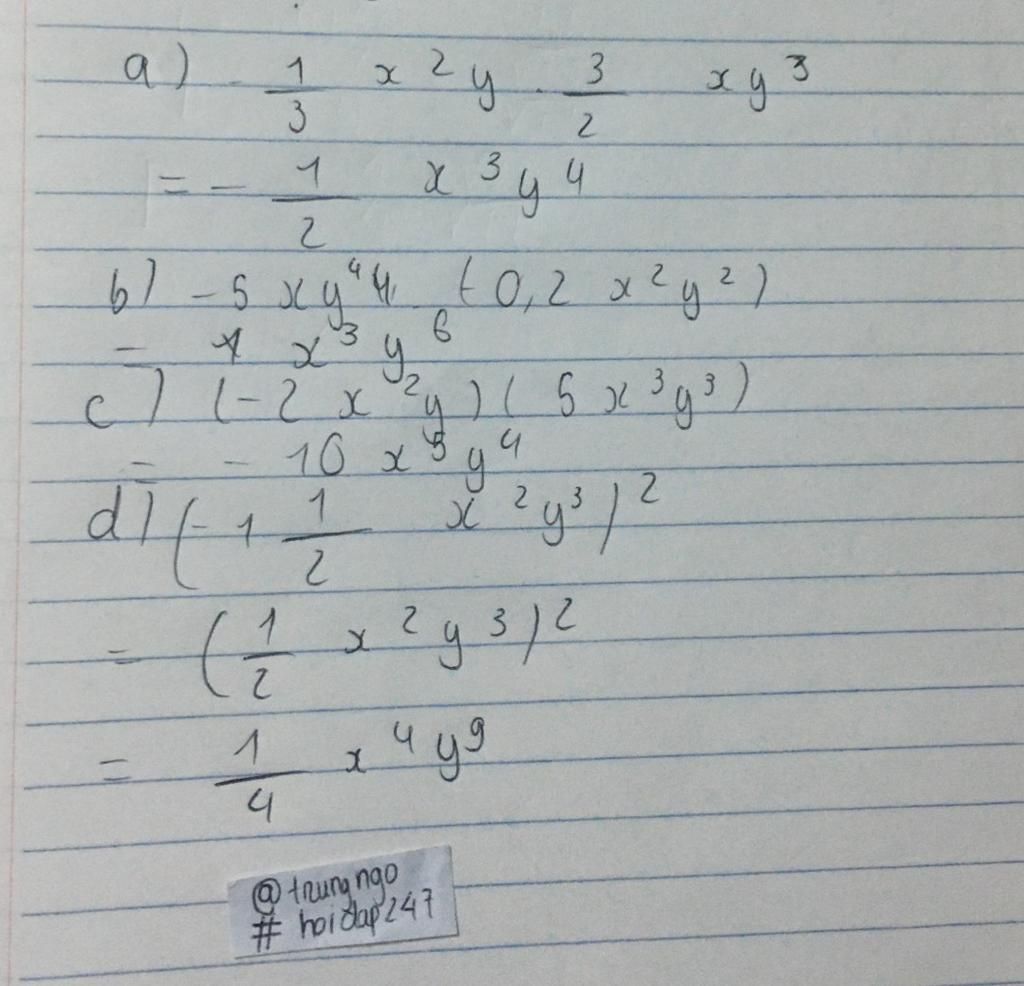 a) - 1/3 x²y . 3/2 xy³
= - 1/2 x³y⁴
b) -5 xy⁴ . (-0,2 x²y²)
= 1 x³y⁶
c) (-2 x²y)(5 x³y³)
= - 10 x⁵y⁴
d) (-1 1/2 x²y³)²
= (1/2 x²y³)²
= 1/4 x⁴y⁹
@trungngo
# hoidap247